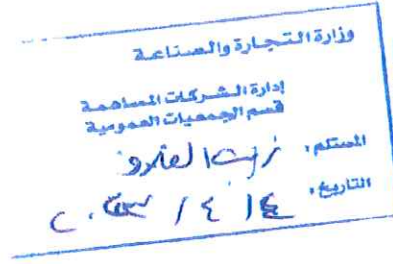 وزارة التجارة والصناعة
إدارة الشركات المساهمة
قسم الجمعيات العمومية
المستلم:
التاريخ: ١٤ / ٤ /